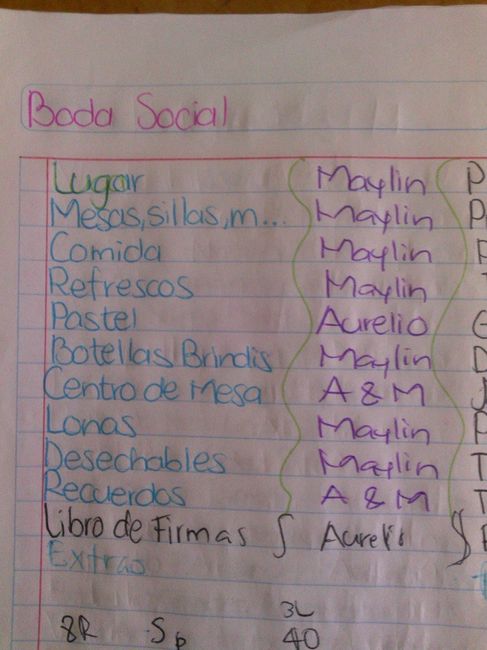 Boda Social
Lugar Maylin P
Mesas, sillas, m... Maylin P
Comida Maylin P
Refrescos Maylin
Pastel Aurelio
Botellas Brindis Maylin D
Centro de Mesa A & M J
Lonas Maylin P
Desechables Maylin T
Recuerdos A & M T
Libro de Firmas Aurelio
Extras
3L
8R 40